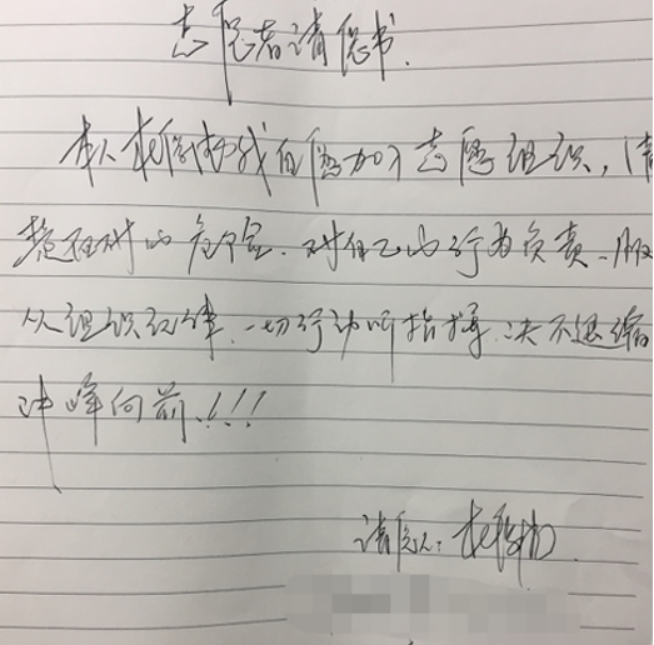 志愿者请愿书.
本人 我自愿加入志愿组织,请
楚面对的危险.对自己的行为负责.服
从组织纪律.一切行动听指挥.决不退缩
冲峰向前.!!!
请愿人: